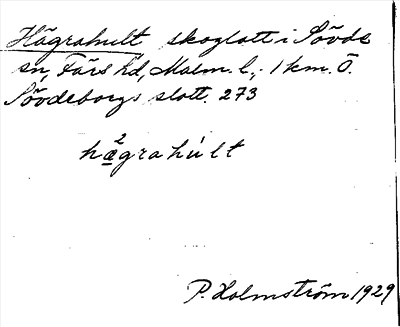 Hägrahult skoglott i Sövde
sn, Färs hd, Malm. l., 1 km. Ö.
Sövdeborgs slott. 273
hä²grahùlt
P. Holmström 1929